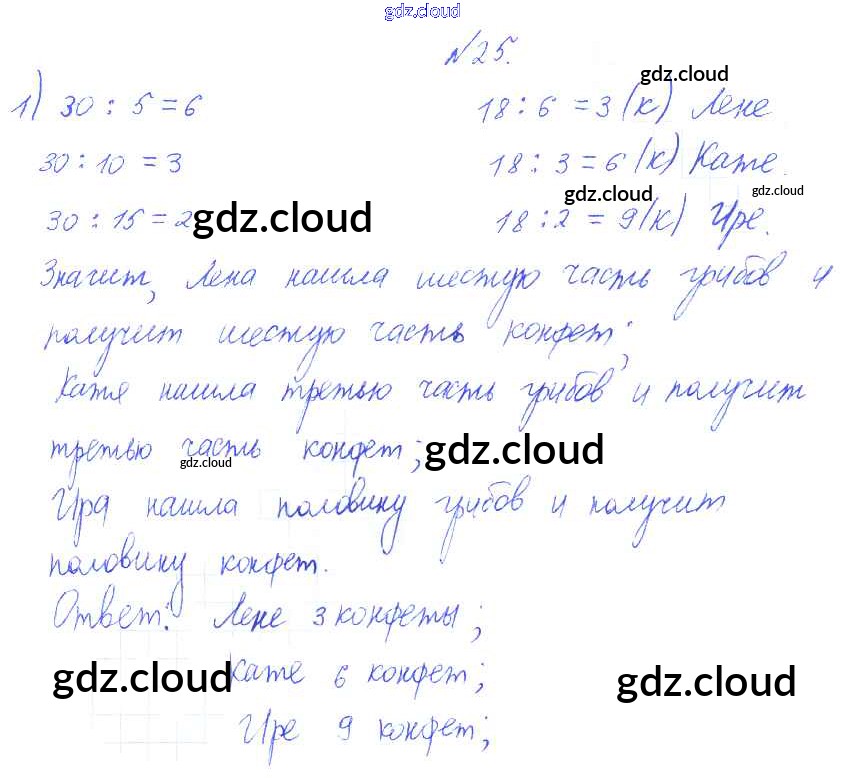 gdz.cloud
№25.
gdz.cloud
1) 30 : 5 = 6
18 : 6 = 3 (к) Лене
30 : 10 = 3
18 : 3 = 6 (к) Кате.
gdz.cloud gdz.cloud
30 : 15 = 2 gdz.cloud
18 : 2 = 9 (к) Ире.
Значит, Лена нашла шестую часть грибов и
получит шестую часть конфет;
Катя нашла третью часть грибов и получит
третью часть конфет; gdz.cloud
gdz.cloud
Ира нашла половину грибов и получит
половину конфет.
Ответ: Лене 3 конфеты;
gdz.cloud Кате 6 конфет; gdz.cloud
Ире 9 конфет;